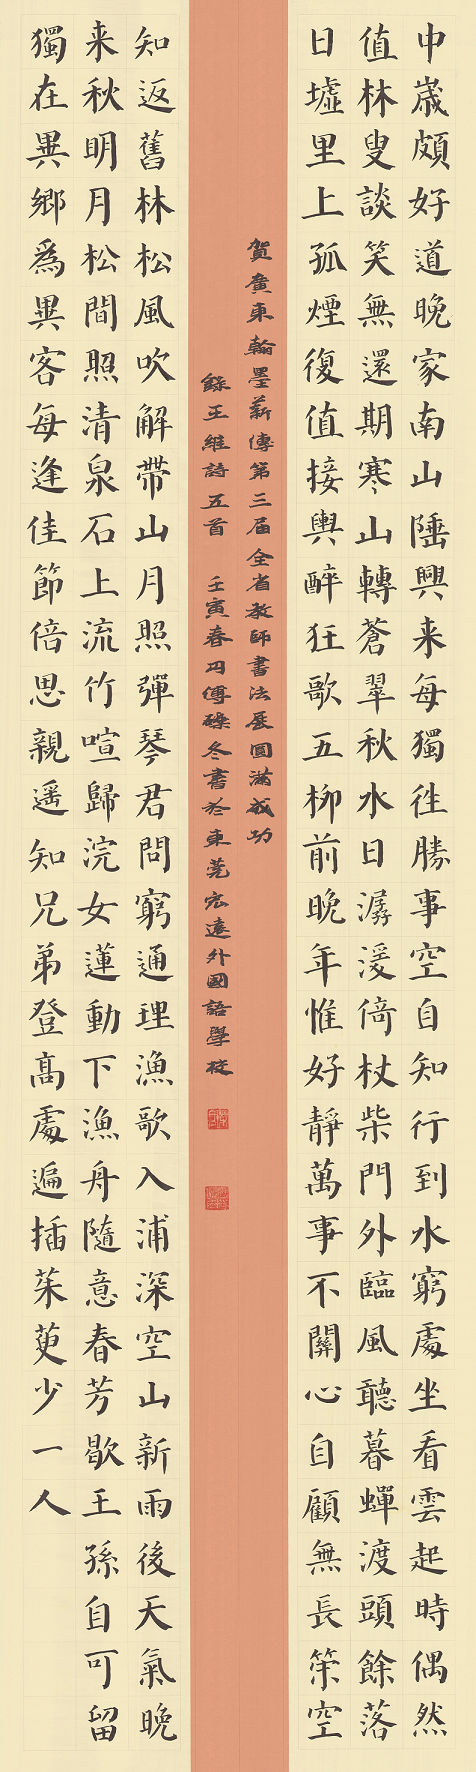 中歲頗好道晚家南山陲興来每獨往勝事空自知行到水窮處坐看雲起時偶然
值林叟談笑無還期寒山轉蒼翠秋水日潺湲倚杖柴門外臨風聽暮蟬渡頭餘落
日墟里上孤煙復值接輿醉狂歌五柳前晚年惟好靜萬事不關心自顧無長策空
賀廣東翰墨薪傳第三届全省教師書法展圓滿成功
錄王維詩五首 壬寅春月傅冬書於東莞宏遠外國語學校
知返舊林松風吹解帶山月照彈琴君問窮通理漁歌入浦深空山新雨後天氣晚
来秋明月松間照清泉石上流竹喧歸浣女蓮動下漁舟隨意春芳歇王孫自可留
獨在異鄉爲異客每逢佳節倍思親遥知兄弟登髙處遍插茱萸少一人